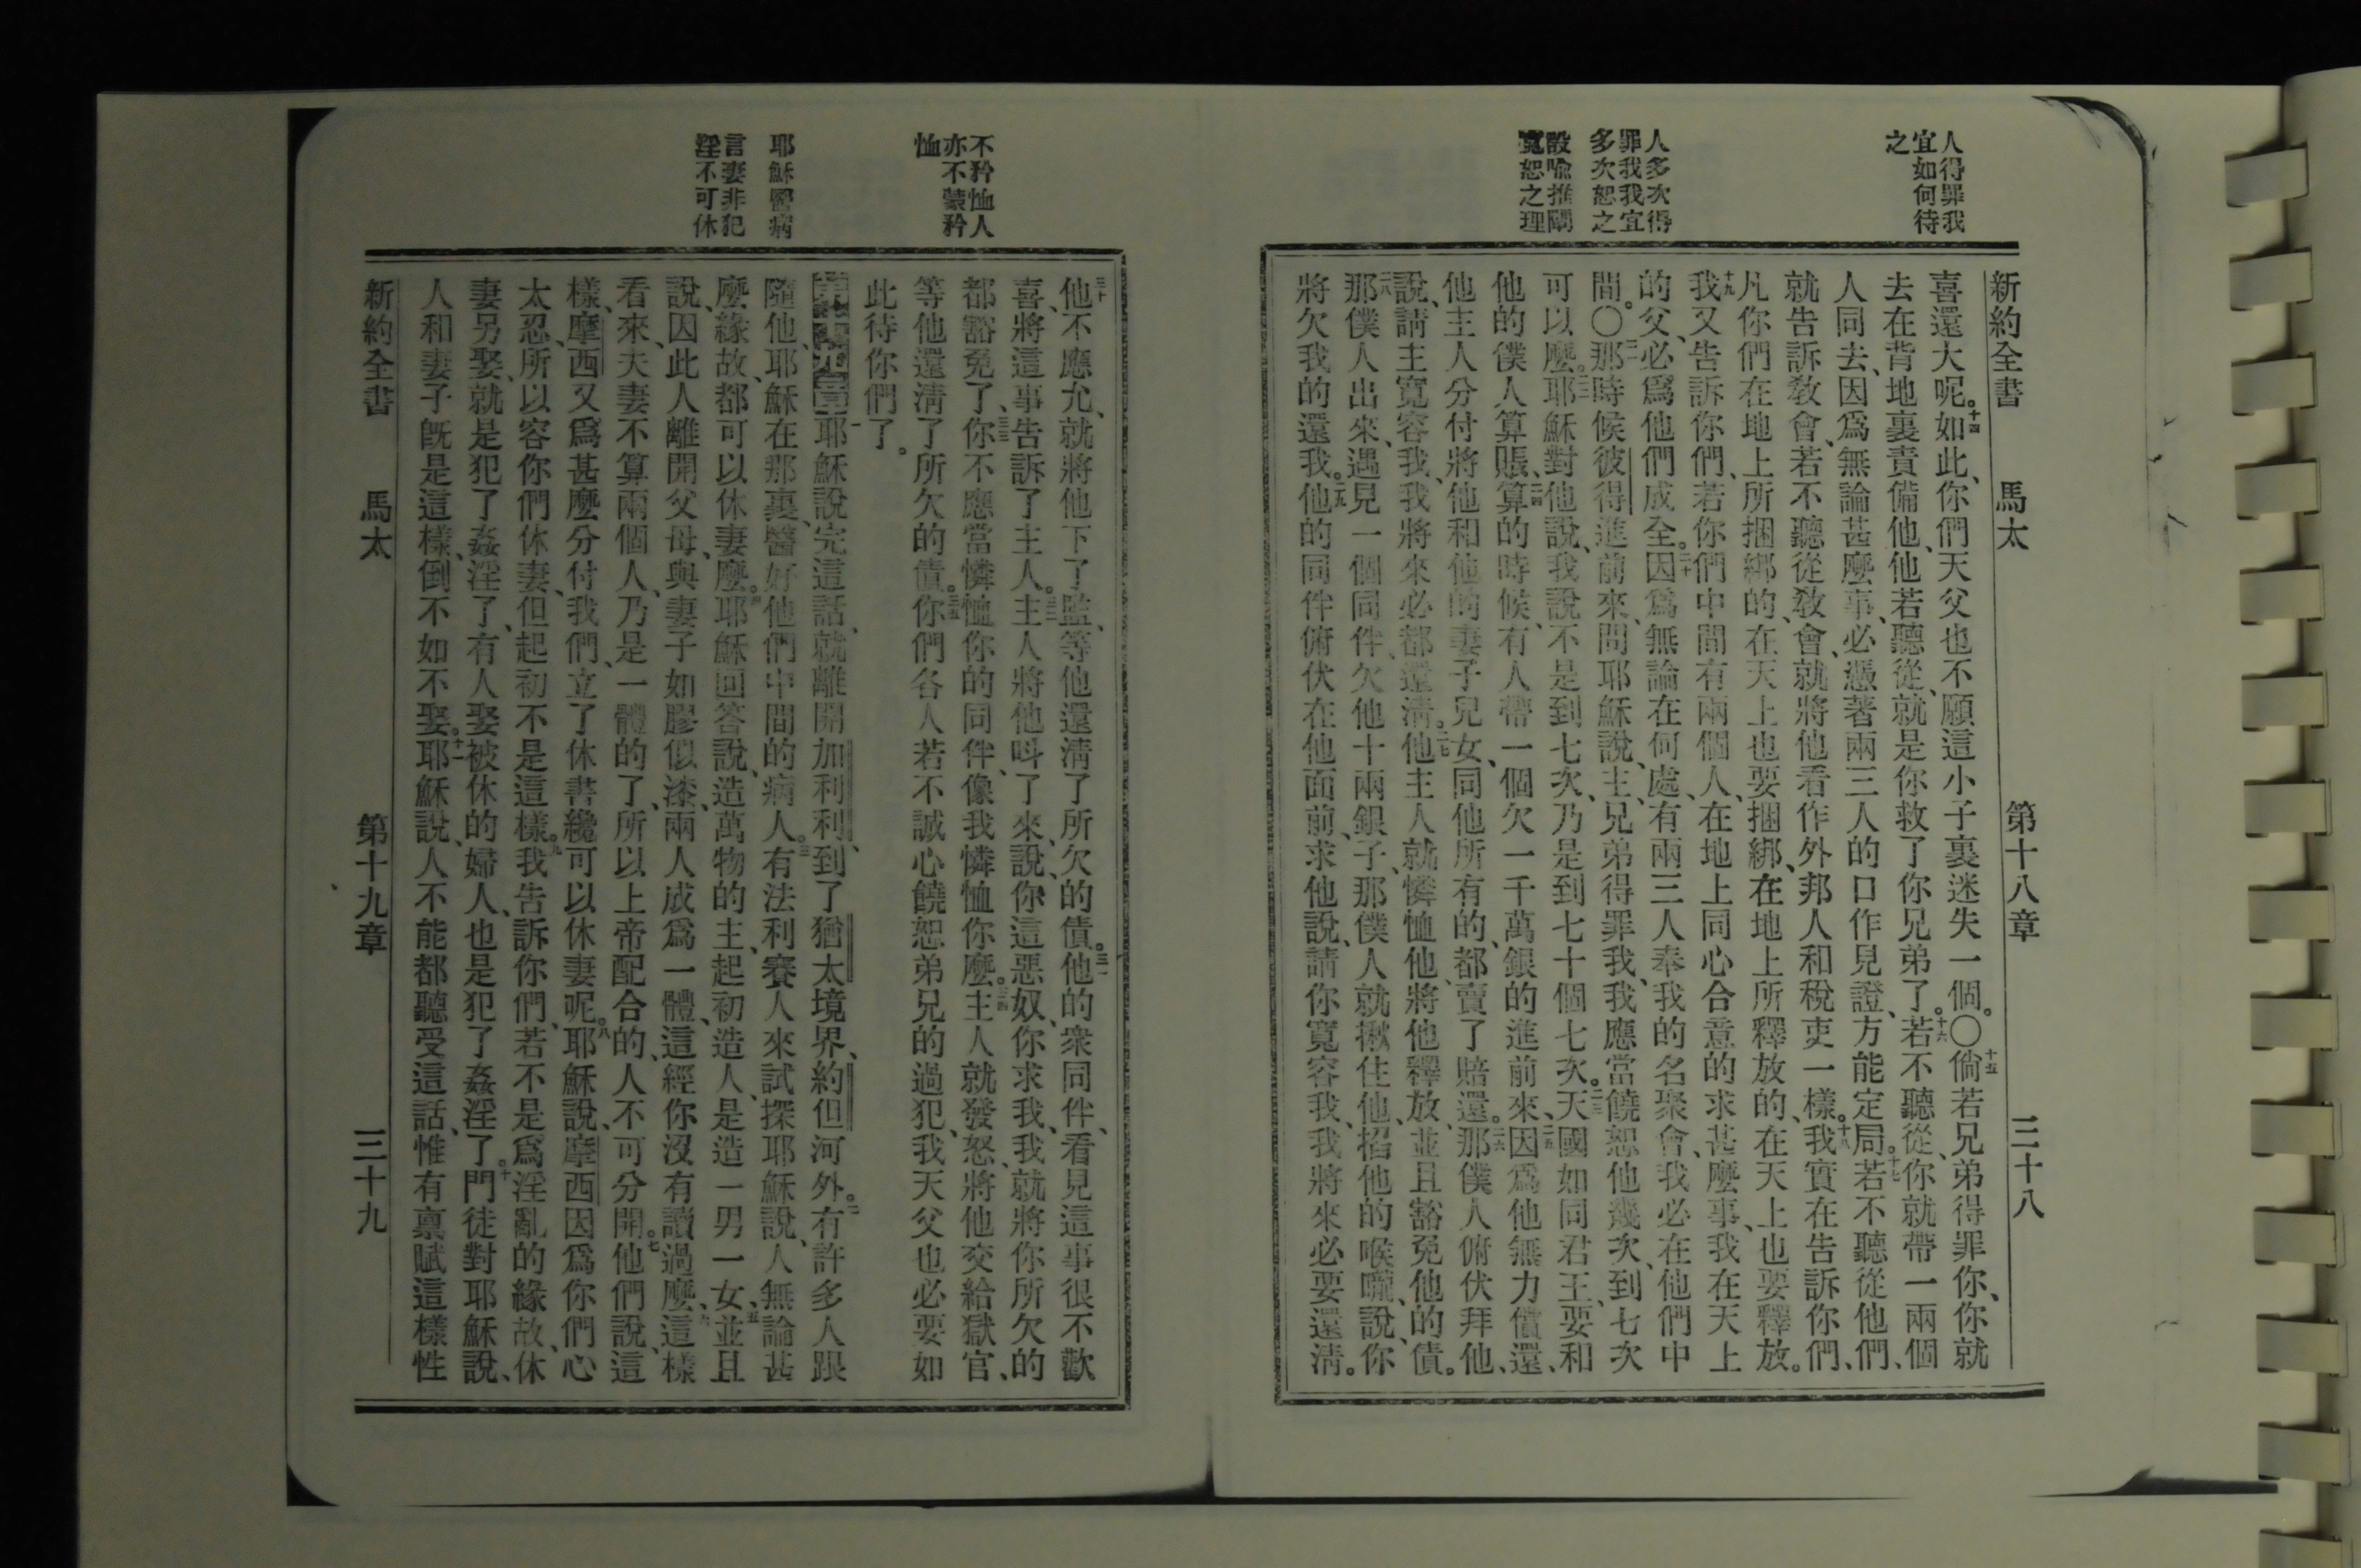 人得罪我
宜如何待
之
人多次得
罪我我宜
多次恕之
設喩推闡
寬恕之理
新約全書 馬太 第十八章 三十八
喜還大呢。十四如此、你們天父也不願這小子裏迷失一個。〇十五倘若兄弟得罪你、你就
去在背地裏責備他、他若聽從、就是你救了你兄弟了。十六若不聽從、你就帶一兩個
人同去、因爲無論甚麼事、必憑著兩三人的口作見證、方能定局。十七若不聽從他們、
就告訴敎會、若不聽從敎會、就將他看作外邦人和稅吏一樣。十八我實在告訴你們、
凡你們在地上所捆綁的、在天上也要捆綁、在地上所釋放的、在天上也要釋放。
十九我又告訴你們、若你們中間有兩個人、在地上同心合意的求甚麼事、我在天上
的父、必爲他們成全。二十因爲無論在何處、有兩三人奉我的名聚會、我必在他們中
間。〇二一那時候彼得進前來、問耶穌說、主、兄弟得罪我、我應當饒恕他幾次、到七次
可以麼。二二耶穌對他說、我說不是到七次、乃是到七十個七次。二三天國如同君王、要和
他的僕人算賬、二四算的時候、有人帶一個欠一千萬銀的進前來、二五因爲他無力償還、
他主人分付將他和他的妻子兒女、同他所有的、都賣了賠還。二六那僕人俯伏拜他、
說、請主寬容我、我將來必都還清。二七他主人就憐恤他、將他釋放、並且豁免他的債。
二八那僕人出來、遇見一個同伴、欠他十兩銀子、那僕人就揪住他、掐他的喉嚨、說、你
將欠我的還我。二九他的同伴俯伏在他面前、求他說、請你寬容我、我將來必要還清。
不矜恤人
亦不蒙矜
恤
耶穌醫病
言妻非犯
淫不可休
三十他不應允、就將他下了監、等他還清了所欠的債。三一他的衆同伴、看見這事很不歡
喜、將這事告訴了主人。三二主人將他呌了來、說、你這惡奴、你求我、我就將你所欠的
都豁免了、三三你不應當憐恤你的同伴、像我憐恤你麼。三四主人就發怒、將他交給獄官、
等他還清了所欠的債。三五你們各人若不誠心饒恕弟兄的過犯、我天父也必要如
此待你們了。
第十九章 一耶穌說完這話、就離開加利利、到了猶太境界、約但河外。二有許多人跟
隨他、耶穌在那裏、醫好他們中間的病人。三有法利賽人來試探耶穌說、人無論甚
麼緣故、都可以休妻麼。四耶穌回答說、造萬物的主、起初造人、是造一男一女、五並且
說、因此人離開父母、與妻子如膠似漆、兩人成爲一體、這經你沒有讀過麼、六這樣
看來、夫妻不算兩個人、乃是一體的了、所以上帝配合的、人不可分開。七他們說、這
樣、摩西又爲甚麼分付我們、立了休書纔可以休妻呢。八耶穌說、摩西因爲你們心
太忍、所以容你們休妻、但起初不是這樣。九我告訴你們、若不是爲淫亂的緣故、休
妻另娶、就是犯了姦淫了、有人娶被休的婦人、也是犯了姦淫了。十門徒對耶穌說、
人和妻子旣是這樣、倒不如不娶。十一耶穌說、人不能都聽受這話、惟有禀賦這樣性
新約全書 馬太 第十九章 三十九